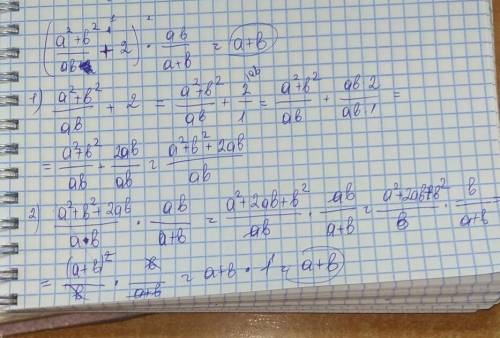 (a²+b²/ab + 2) · ab/a+b = a+b
1) a²+b²/ab + 2 = a²+b²/ab + 2/1 = a²+b²/ab + ab 2/ab 1 =
= a²+b²/ab + 2ab/ab = a²+b²+2ab/ab
2) a²+b²+2ab/a·b · ab/a+b = a²+2ab+b²/ab · ab/a+b = a²+2ab+b²/b · b/a+b =
= (a+b)²/b · b/a+b = a+b · 1 = a+b